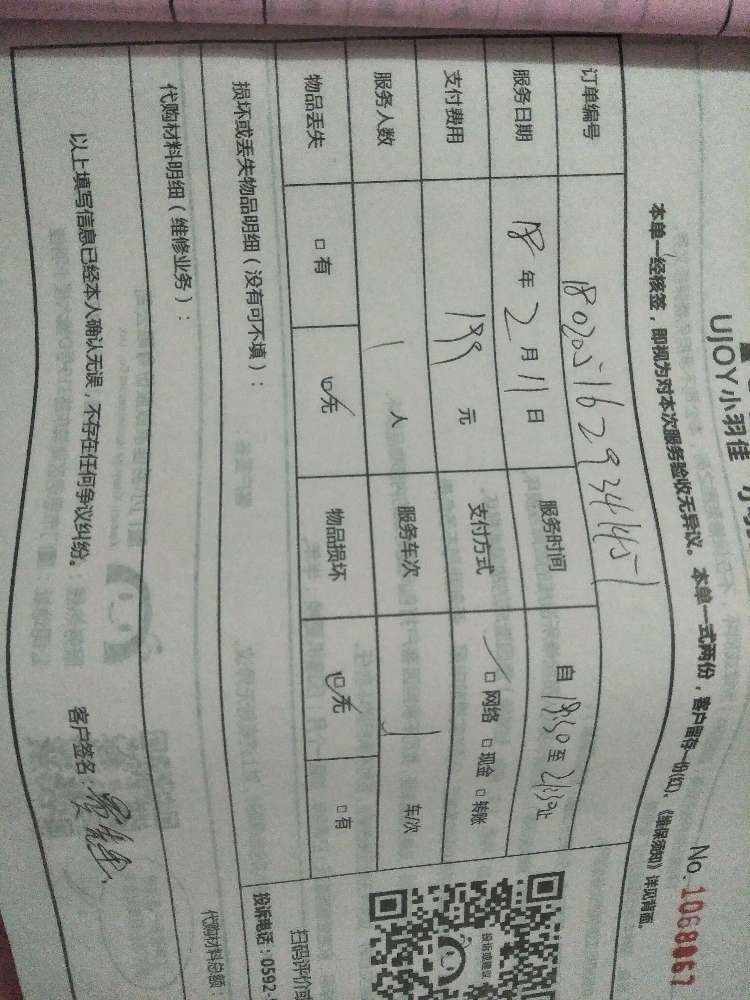 UJOY小羽佳
No.1068067
本单一经核签，即视为对本次服务验收无异议。本单一式两份，客户留存一份(红)，《维保须知》详见背面。
订单编号 1802051629341451
服务日期 18年2月11日 服务时间 自18:30至21:30止
支付费用 199元 支付方式 □网络 □现金 □转账
服务人数 1人 服务车次 1车/次
物品丢失 □有 ☑无 物品损坏 ☑无 □有
损坏或丢失物品明细（没有可不填）：
代购材料明细（维修业务）：
代购材料总额：
以上填写信息已经本人确认无误，不存在任何争议纠纷。 客户签名：
扫码评价
投诉电话：0592-